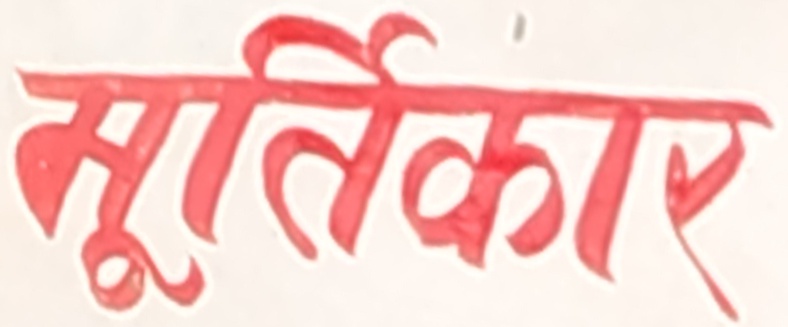 मूर्तिकार